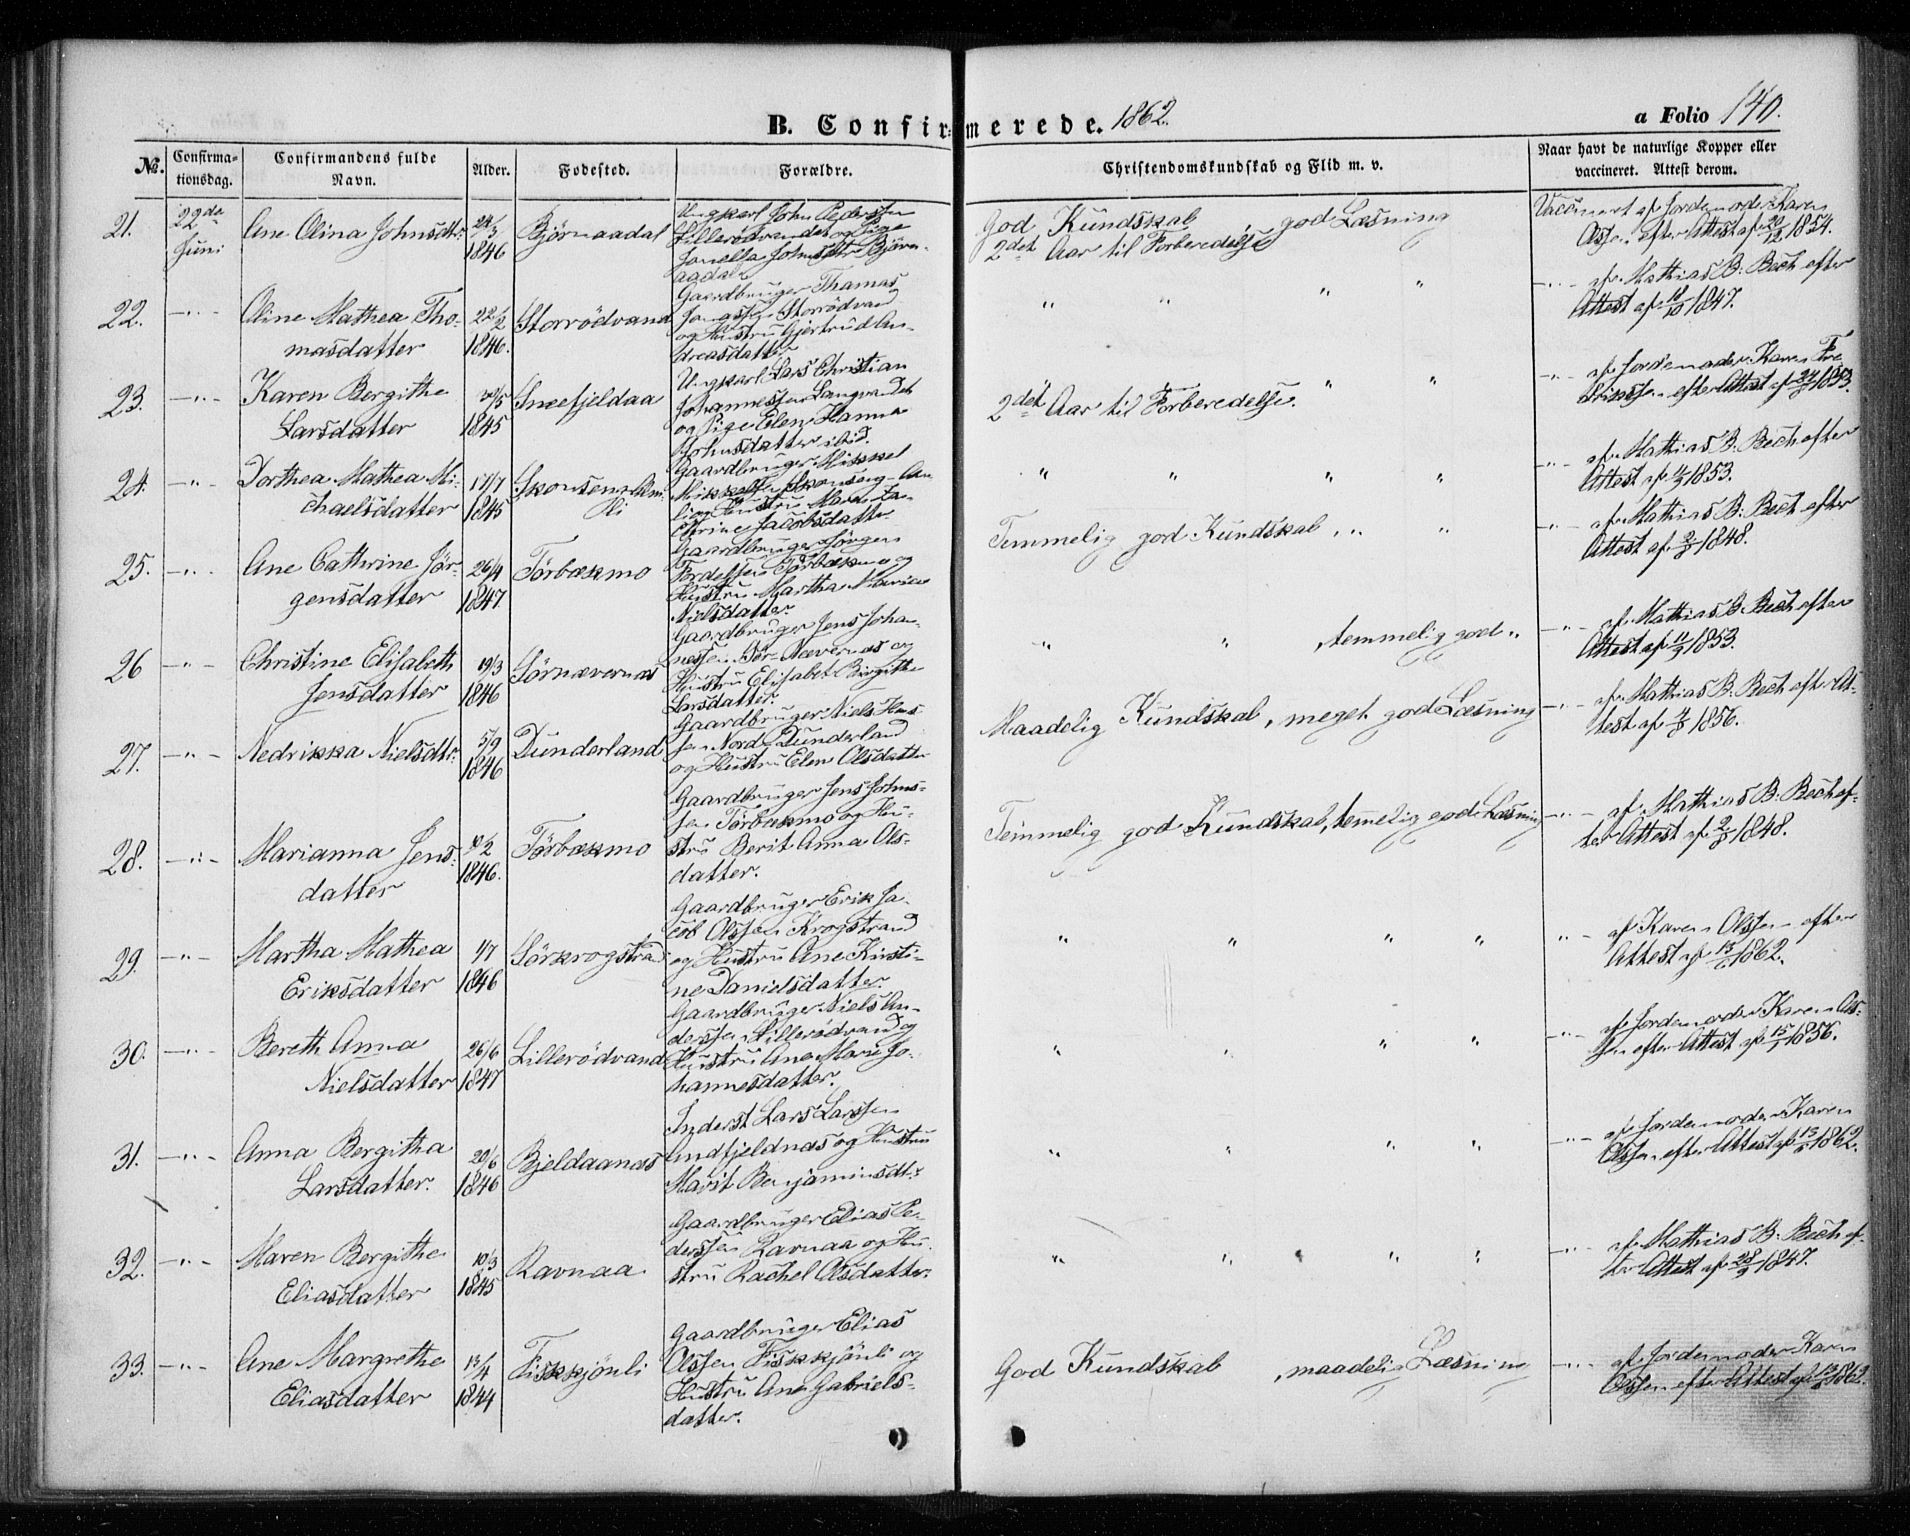 B. Confirmerede. 1862. a Folio 140.
No. Confirmationsdag. Confirmandens fulde Navn. Alder. Fødested. Forældre. Christendomskundskab og Flid m. v. Naar havt de naturlige Kopper eller vaccineret. Attest derom.
21. 22de Juni Ane Olina Johnsdtr. 24/3 1846 Bjørnaadal
Ungkarl John Pedersen
Lillerødvandet og Pige
Jonella Johnsdtr Bjørn-
aadal
God Kundskab, god Læsning
2det Aar til Forberedelse
Vaccineret af Jordemoder Karen
Olssen efter Attest af 20/12 1854.
22. —"— Oline Mathea Tho-
masdatter 22/2 1846. Storrødvand
Gaardbruger Thomas
Jonassen Storrødvand
og Hustru Gjertrud An-
dreasdatter.
" " " "
—"— af Mathias B. Bech efter
Attest af 18/10 1847.
23. —"— Karen Bergithe
Larsdatter 20/5 1845 Sneefjeldaa
Ungkarl Lars Christian
Johannessen Langvandet
og Pige Elen Hanna
Johnsdatter ibid.
2det Aar til Forberedelse. " "
—"— af Jordemoder Karen Fre
drikssen efter Attest af 1853.
24. —"— Dorthea Mathea Mi-
chaelsdatter 17/7 1845 Skonseng Am
li
Gaardbruger Mikkel
Mikkelsen Skonseng-Am
li og Hustru Maren Ca-
thrine Jacobsdatter
" " " "
—"— af Mathias B. Bech efter
Attest af 1853.
25. —"— Ane Cathrine Jør-
gensdatter 26/4 1847. Tørbækmo
Gaardbruger Jørgen
Tørbækmo og
Hustru Martha Maria
Nielsdatter.
Temmelig god Kundskab, " "
—"— af Mathias B. Bech efter
Attest af 1848.
26 —"— Christine Elisabeth
Jensdatter 19/3 1846 Sørnævernæs
Gaardbruger Jens Joha-
nessen Sør-Nævernæs og
Hustru Elisabet Birgitte
Larsdatter.
" " , temmelig god "
—"— af Mathias B. Bech efter
Attest af 1853.
27. —"— Nedrikka Nielsdtr. 5/9 1846 Dunderland
Gaardbruger Niels Han-
sen Nord-Dunderland
og Hustru Elen Olsdatter
Maadelig Kundskab, meget god Læsning
—"— af Mathias B. Bech efter At-
test af 1856.
28. —"— Marianna Jens-
datter 10/2 1846. Tørbækmo
Gaardbruger Jens Johns-
sen Tørbækmo og Hu-
stru Berit Anna Ols-
datter.
Temmelig god Kundskab, temmelig god Læsning
—"— af Mathias B. Bech ef-
ter Attest af 1848.
29. —"— Martha Mathea
Eriksdatter 1/7 1846 Sørkrogstrad
Gaardbruger Erik Ja-
cob Olssen Krogstrand
og Hustru Ane Kirsti-
ne Danielsdatter.
" " " "
"— af Karen Olssen efter
Attest af 1862.
30. —"— Bereth Anna
Nielsdatter 26/6 1847 Lillerødvand
Gaardbruger Niels An-
derssen Lillerødvand og
Hustru Ane Marie Jo-
hannesdatter.
" " " "
—"— af Jordemoder Karen Ols-
sen efter Attest af 1856.
31. —"— Anna Bergitha
Larsdatter. 20/6 1846 Bjeldaanæs
Inderst Lars Larssen
Andfjeldnæs og Hustru
Marit Benjaminsdtr
" " " "
—"— af Jordemoder Karen
Olssen efter Attest af 1862.
32. —"— Maren Bergithe
Eliasdatter 10/3 1845 Ravnaa
Gaardbruger Elias Pe-
derssen Ravnaa og Hu-
stru Rachel Olsdatter.
" " " "
—"— af Mathias B. Bech ef-
ter Attest af 1847.
33. —"— Ane Margrethe
Eliasdatter 13/4 1844 Fiskkjønli
Gaardbruger Elias
Olssen Fiskkjønli og
Hustru Ane Gabriels-
datter.
God Kundskab, maadelig Læsning
—"— af Jordemoder Karen
Olssen efter Attest af 1862.